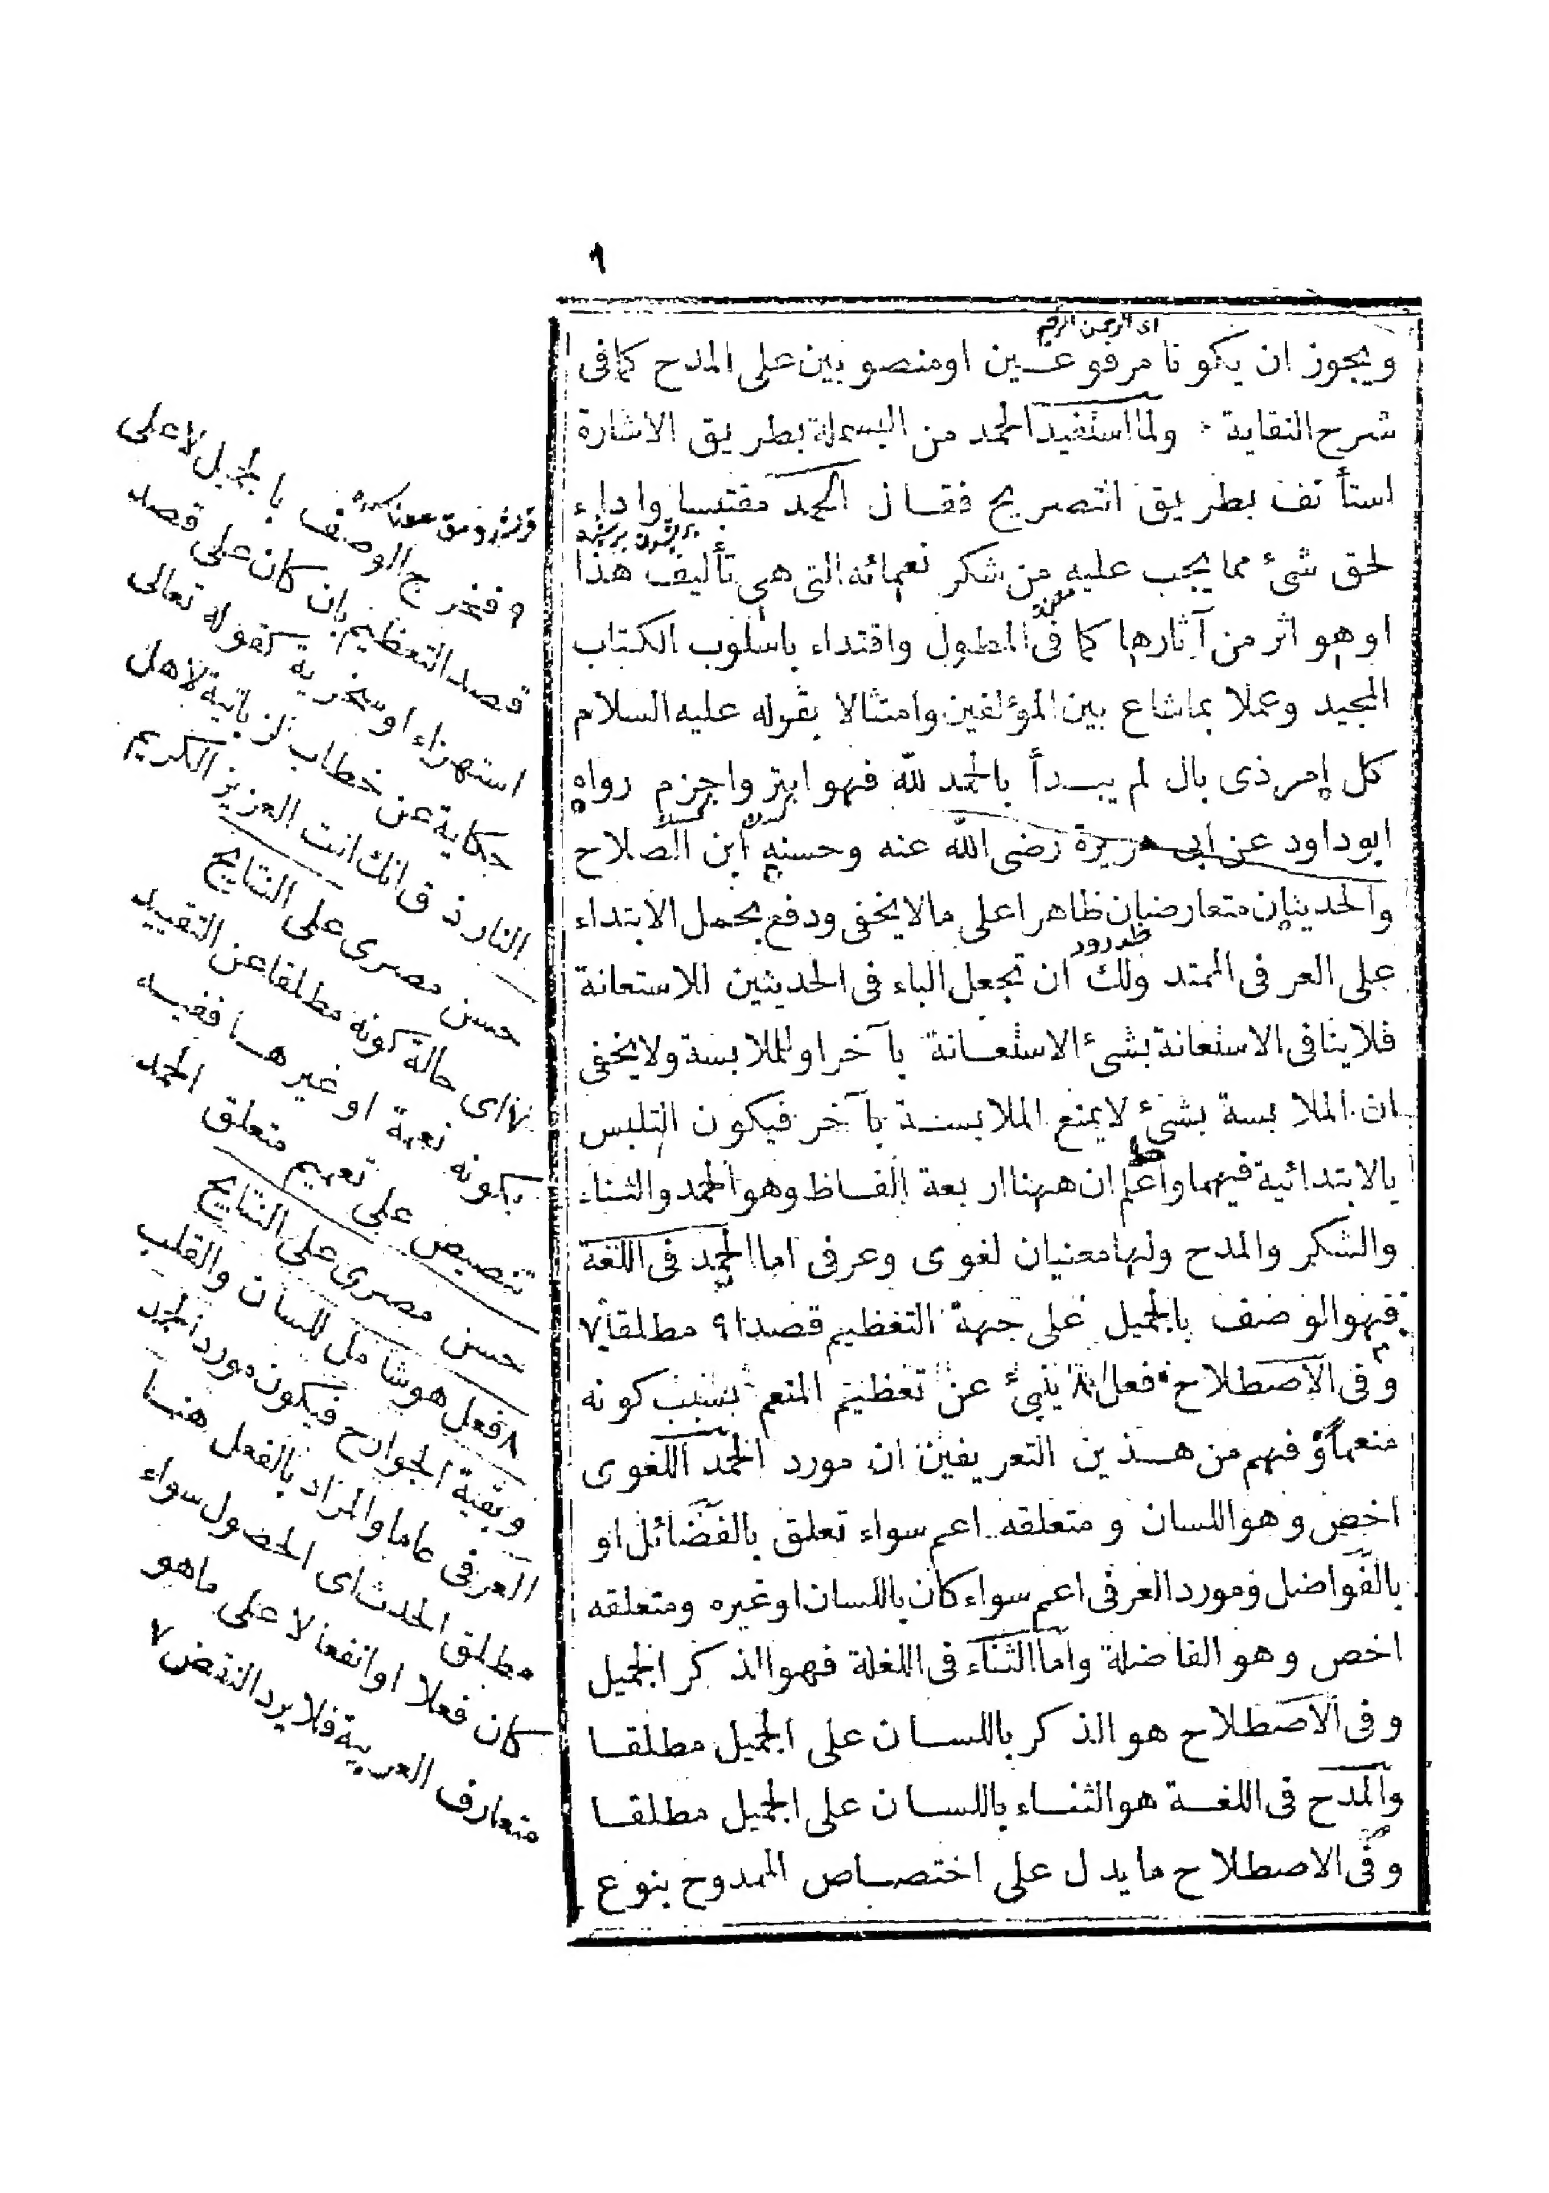 ٩
اى الرحمن الرحيم
ويجوز ان يكونا مرفوعين اومنصوبين على المدح كمافى
شرح النقاية ولمااستفيدالحمد من البسملة بطريق الاشارة
استأنف بطريق التصريح فقال الحمد مقتبسا واداء
لحق شئ مما يجب عليه من شكر نعمائه التى هى تأليف هذا
اوهو اثر من آثارها كما فى المطول واقتداء باسلوب الكتاب
المجيد وعملا بماشاع بين المؤلفين وامتثالا بقوله عليه السلام
كل امر ذى بال لم يبدأ بالحمد لله فهو ابتر واجزم رواه
ابوداود عن ابى هريرة رضى الله عنه وحسنه ابن الصلاح
والحديثان متعارضان ظاهرا على مالايخفى ودفع بحمل الابتداء
على العرفى الممتد ولك ان تجعل الباء فى الحديثين للاستعانة
فلاينافى الاستعانة بشئ الاستعانة بآخر اوللملابسة ولايخفى
ان الملابسة بشئ لايمنع الملابسة بآخر فيكون التلبس
بالابتدائية فيهما واعلم ان ههنااربعة الفاظ وهو الحمد والثناء
والشكر والمدح ولهامعنيان لغوى وعرفى اماالحمد فى اللغة
فهوالوصف بالجميل على جهة التعظيم قصدا ٩ مطلقا ٧
وفى الاصطلاح فعل ٨ ينبئ عن تعظيم المنعم بسبب كونه
منعما وفهم من هذين التعريفين ان مورد الحمد اللغوى
اخص وهواللسان ومتعلقه اعم سواء تعلق بالفضائل او
بالفواضل ومورد العرفى اعم سواء كان باللسان اوغيره ومتعلقه
اخص وهو الفاضلة واماالثناء فى اللغة فهوالذكر الجميل
وفى الاصطلاح هوالذكر باللسان على الجميل مطلقا
والمدح فى اللغة هوالثناء باللسان على الجميل مطلقا
وفى الاصطلاح مايدل على اختصاص الممدوح بنوع
٩ فخرج الوصف بالجميل لاعلى
قصد التعظيم بان كان على قصد
استهزاء اوسخرية كقوله تعالى
حكاية عن خطاب الزبانية لاهل
النار ذق انك انت العزيز الكريم
حسن مصرى على النتايج
٧ اى حالة كونه مطلقا عن التقييد
بكونه نعمة او غيرها ففيه
تنصيص على تعميم متعلق الحمد
حسن مصرى على النتايج
٨ فعل هوشامل للسان والقلب
وبقية الجوارح فيكون مورد الحمد
العرفى عاما والمراد بالفعل هنا
مطلق الحدث اى الحصول سواء
كان فعلا او انفعالا على ماهو
متعارف العربية فلايرد النقض ٧